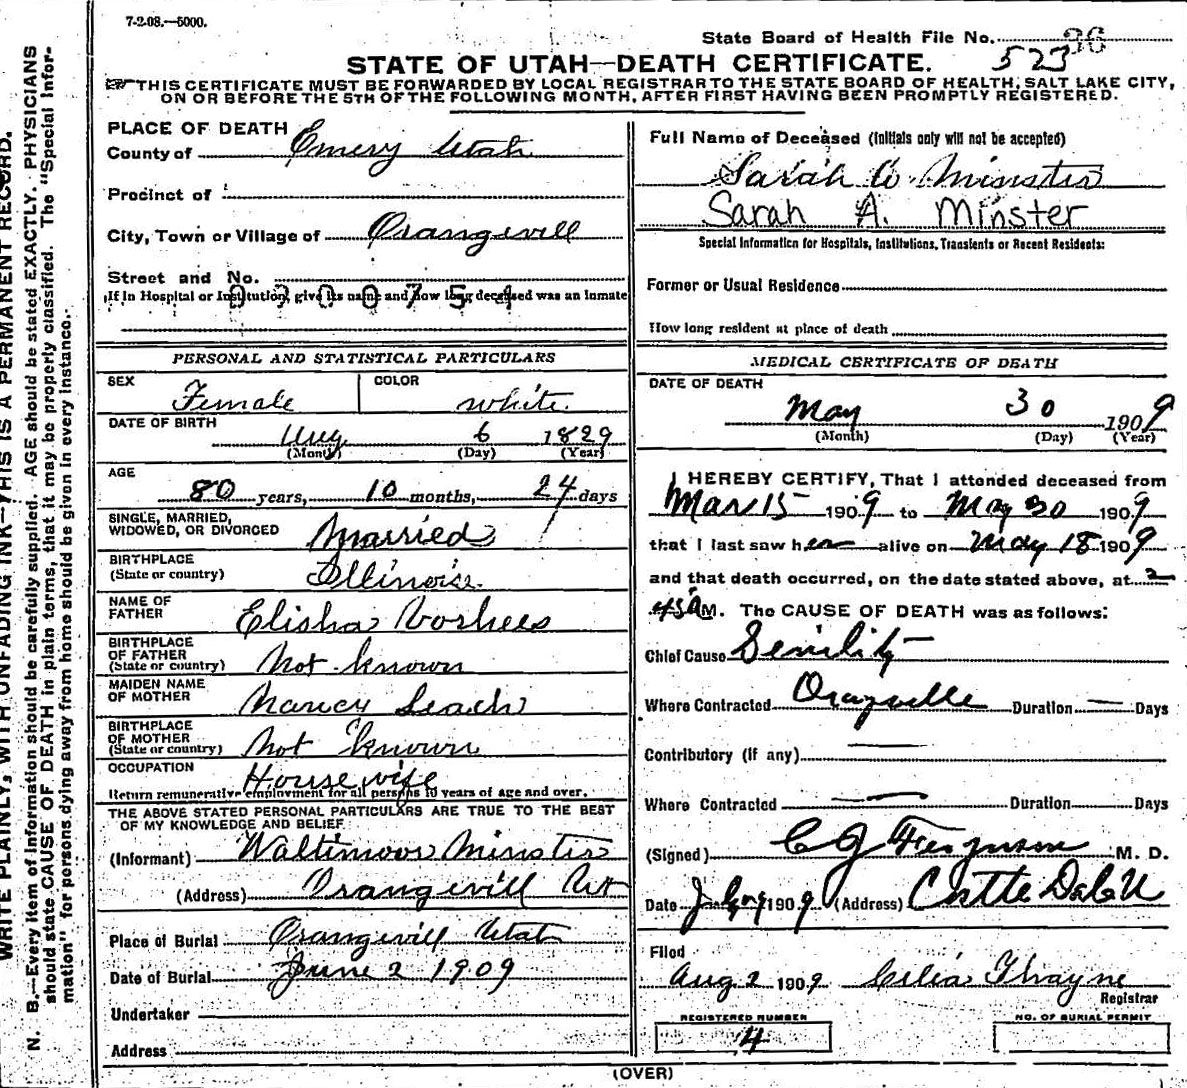 7-2-08.—5000.
State Board of Health File No. 36
523
STATE OF UTAH—DEATH CERTIFICATE.
THIS CERTIFICATE MUST BE FORWARDED BY LOCAL REGISTRAR TO THE STATE BOARD OF HEALTH, SALT LAKE CITY,
ON OR BEFORE THE 5TH OF THE FOLLOWING MONTH, AFTER FIRST HAVING BEEN PROMPTLY REGISTERED.
PLACE OF DEATH
County of Emery Utah
Precinct of
City, Town or Village of Orangevill
Street and No.
If in Hospital or Institution, give its name and how long deceased was an inmate
0900754
PERSONAL AND STATISTICAL PARTICULARS
SEX Female COLOR white
DATE OF BIRTH
Aug 6 1829
(Month) (Day) (Year)
AGE
80 years, 10 months, 24 days
SINGLE, MARRIED,
WIDOWED, OR DIVORCED Married
BIRTHPLACE
(State or country) Illinois
NAME OF
FATHER Elisha Vorhees
BIRTHPLACE
OF FATHER
(State or country) Not known
MAIDEN NAME
OF MOTHER Nancy Leach
BIRTHPLACE
OF MOTHER
(State or country) Not known
OCCUPATION Housewife
Return remunerative employment for all persons 10 years of age and over.
THE ABOVE STATED PERSONAL PARTICULARS ARE TRUE TO THE BEST
OF MY KNOWLEDGE AND BELIEF
(Informant) Waltimoor Minster
(Address) Orangevill Ut
Place of Burial Orangevill Utah
Date of Burial June 2 1909
Undertaker
Address
Full Name of Deceased (Initials only will not be accepted)
Sarah A Minster
Sarah A. Minster
Special Information for Hospitals, Institutions, Transients or Recent Residents:
Former or Usual Residence
How long resident at place of death
MEDICAL CERTIFICATE OF DEATH
DATE OF DEATH
May 30 1909
(Month) (Day) (Year)
I HEREBY CERTIFY, That I attonded deceased from
Mar 15 1909 to May 30 1909
that I last saw her alive on May 18 1909
and that death occurred, on the date stated above, at 2
45 A M. The CAUSE OF DEATH was as follows:
Chief Cause Senility
Where Contracted Orangeville Duration — Days
Contributory (if any) —
Where Contracted — Duration Days
(Signed) C G Ferguson M. D.
Date 1909 (Address) Castle Dale U
Filed
Aug 2 1909 Celia Thayne
Registrar
REGISTERED NUMBER
4
NO. OF BURIAL PERMIT
(OVER)
WRITE PLAINLY, WITH UNFADING INK—THIS IS A PERMANENT RECORD.
N. B.—Every item of information should be carefully supplied. AGE should be stated EXACTLY. PHYSICIANS
should state CAUSE OF DEATH in plain terms, that it may be properly classified. The "Special Infor-
mation" for persons dying away from home should be given in every instance.